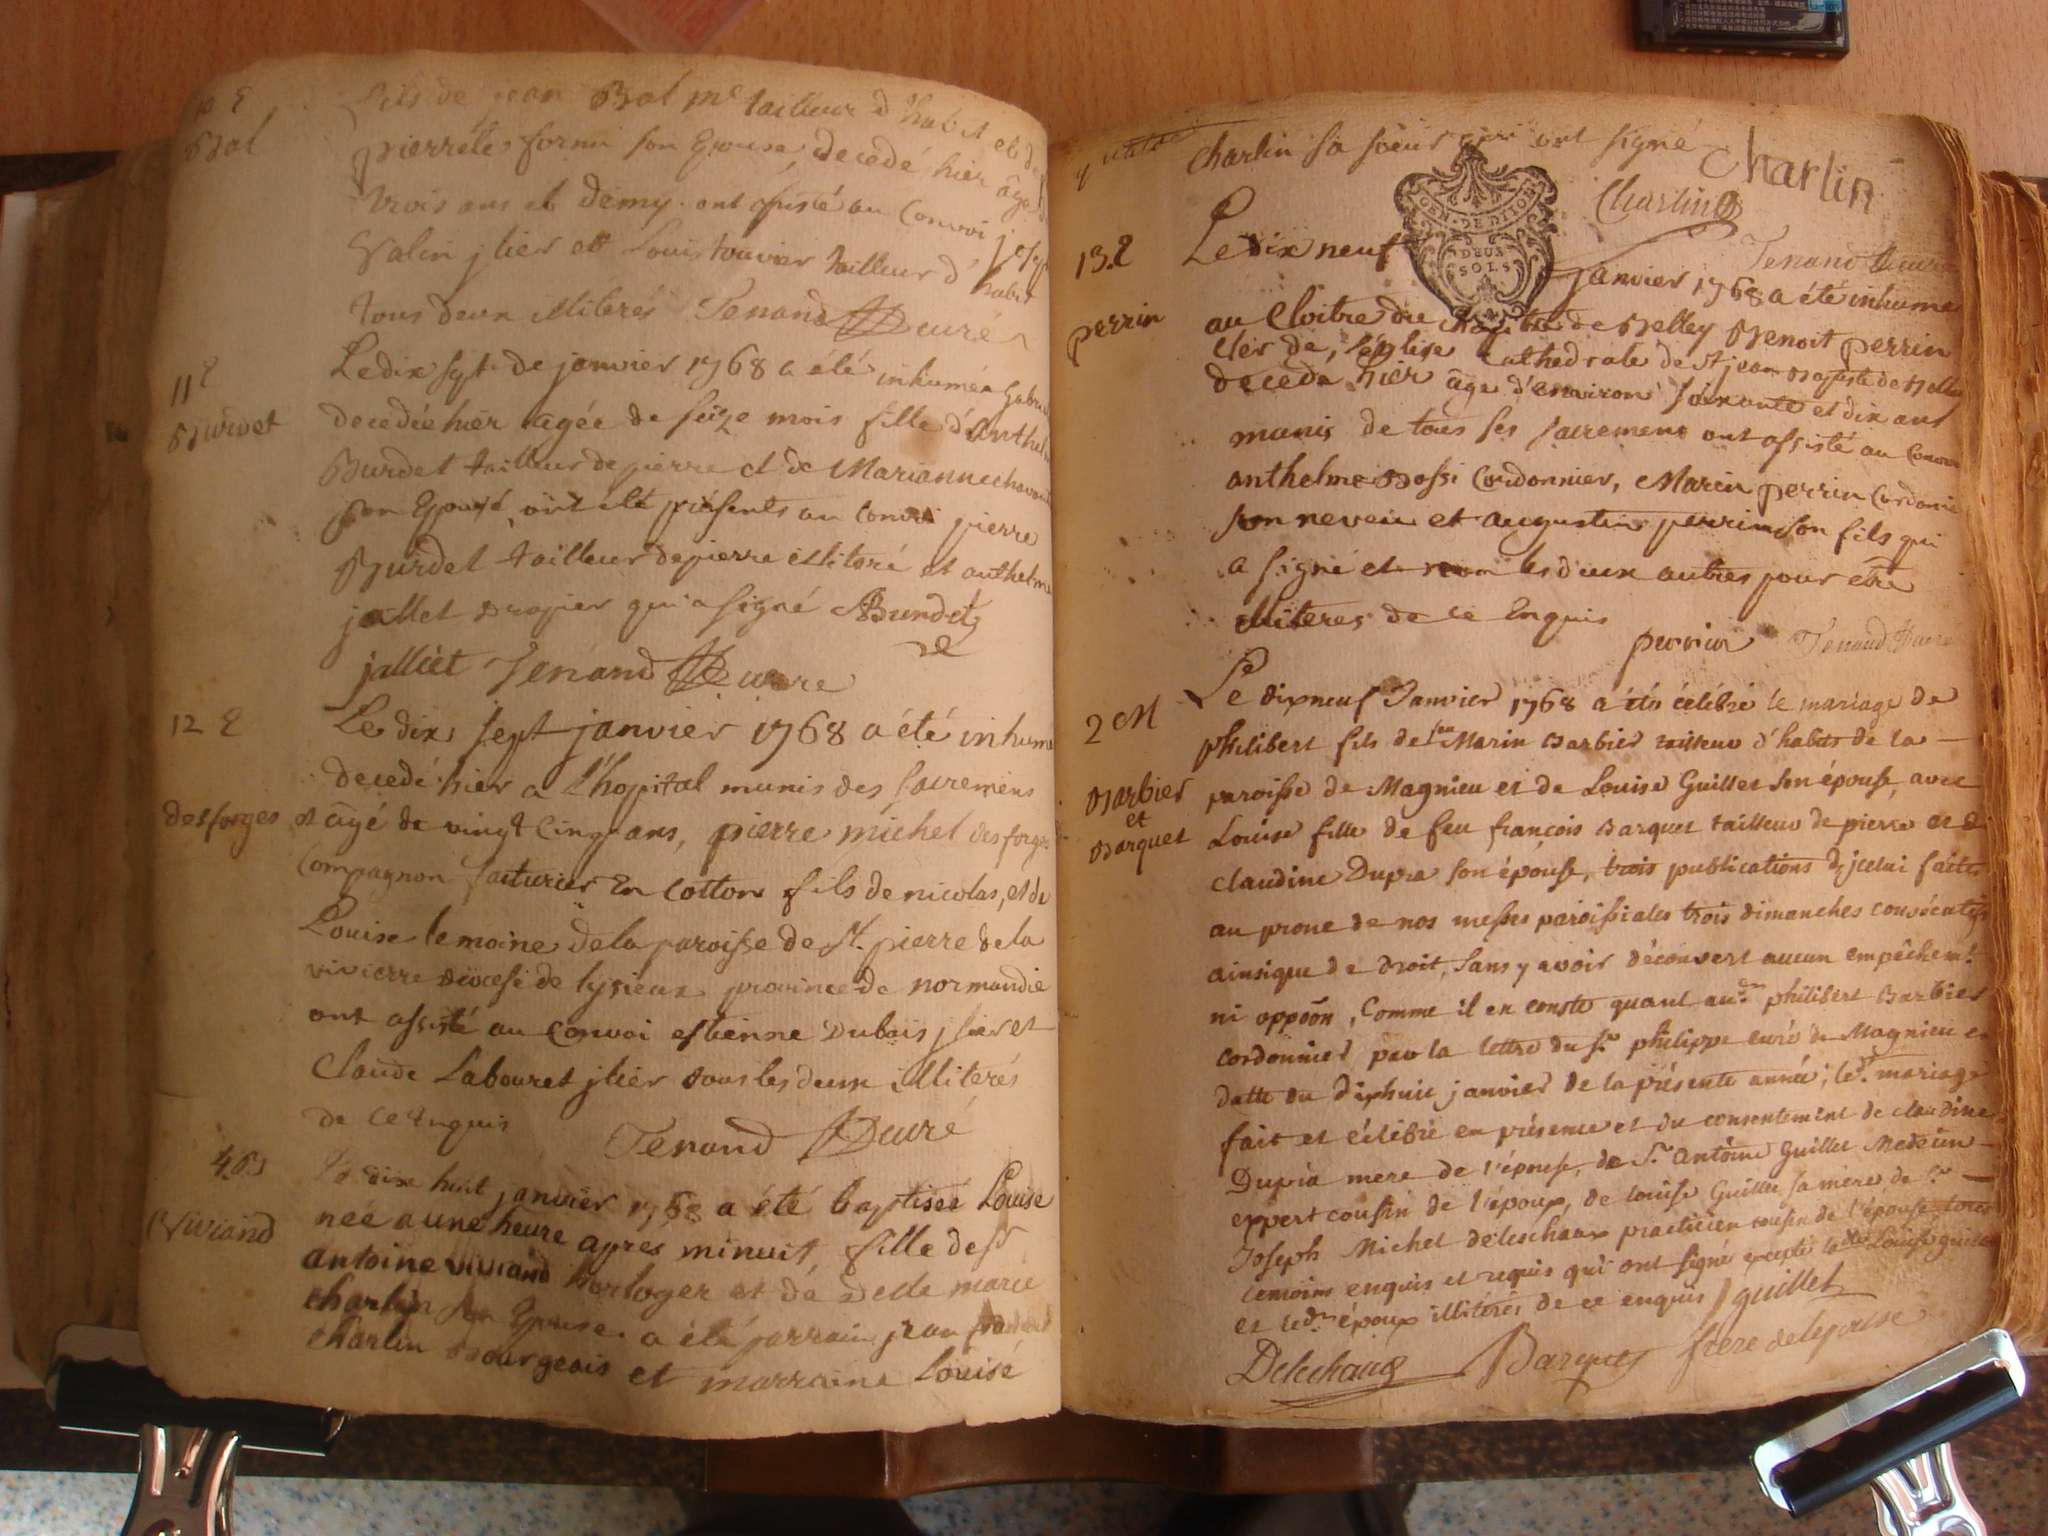 10 E
Bal
fils de jean Bal me tailleur d'habit et de
pierrete fornu son Epouse, decedé hier âgé
trois ans et demy. ont assisté au Convoi
Valin jlier et Louis touvier tailleur d'habit
tous deux illiterés Tenand curé
11 E
Burdet
Le dix sept de janvier 1768 a été inhumée
decedée hier agée de seize mois fille d'Anthelme
Burdet tailleur de pierre et de Marianne
son Epouse, ont été présents au convoi pierre
Burdet tailleur de pierre illiteré et anthelme
jallet drapier qui a signé Burdet
jalliet Tenand curé
12 E
desforges
Le dix sept janvier 1768 a été inhumé
decedé hier a l'hopital munis des sacremens
et âgé de vingt cinq ans, pierre michel desforges
Compagnon facturier En cotton fils de nicolas, et de
Louise lemoine de la paroisse de St. pierre de la
vivierre diocese de lysieux province de normandie
ont assisté au convoi estienne Dubois jlier et
Claude Labouret jlier tous les deux illiterés
de ce Enquis Tenand curé
4 B
Viviand
Le dix huit janvier 1768 a été baptisée Louise
née a une heure apres minuit, fille de sr
antoine viviand horloger et de Delle marie
charlin son Epouse. a été parrain jean
charlin Bourgeois et marraine Louise
charlin sa soeur qui ont signé Charlin
Charlin
Tenand curé
GEN. DE DIJON
DEUX
SOLS
13. E
perrin
Le dix neuf janvier 1768 a été inhumé
au Cloitre du chapitre de Belley Benoit perrin
clerc de l'église Cathedrale de St jean Baptiste de Belley
decedé hier âgé d'environ soixante et dix ans
munis de tous ses sacremens ont assisté au Convoi
anthelme Bossi Cordonnier, Marin perrin Cordonnier
son neveu et augustin perrin son fils qui
a signé et non les deux autres pour etre
illiteres de ce Enquis
perrin Tenand curé
2 M
Barbier
et
Barquet
Le dixneuf Janvier 1768 a été célébré le mariage de
philibert fils de feu Marin Barbier tailleur d'habits de la
paroisse de Magnieu et de Louise Guillet son épouse, avec
Louise fille de feu françois Barquet tailleur de pierre et de
claudine Dupra son épouse, trois publications d'jcelui faites
au prone de nos messes paroissiales trois dimanches consécutifs
ainsique de droit, sans y avoir découvert aucun empêchemt.
ni oppoõn, Comme il en conste quant aud. philibert Barbier
cordonnier par la lettre du sr. philippe curé de Magnieu en
datte du dixhuit janvier de la présente année; led. mariage
fait et célébré en présence et du consentement de claudine
Dupra mere de l'épouse, de Sr. antoine Guillet Medecin
expert cousin de l'époux, de louise Guillet sa mere de Sr.
Joseph Michel deleschaux practicien cousin de l'épouse tous
temoins enquis et requis qui ont signé excepté lade Louise guillet
et led. époux illitérés de ce enquis guillet
Delechaux Barquet frere de lepouse